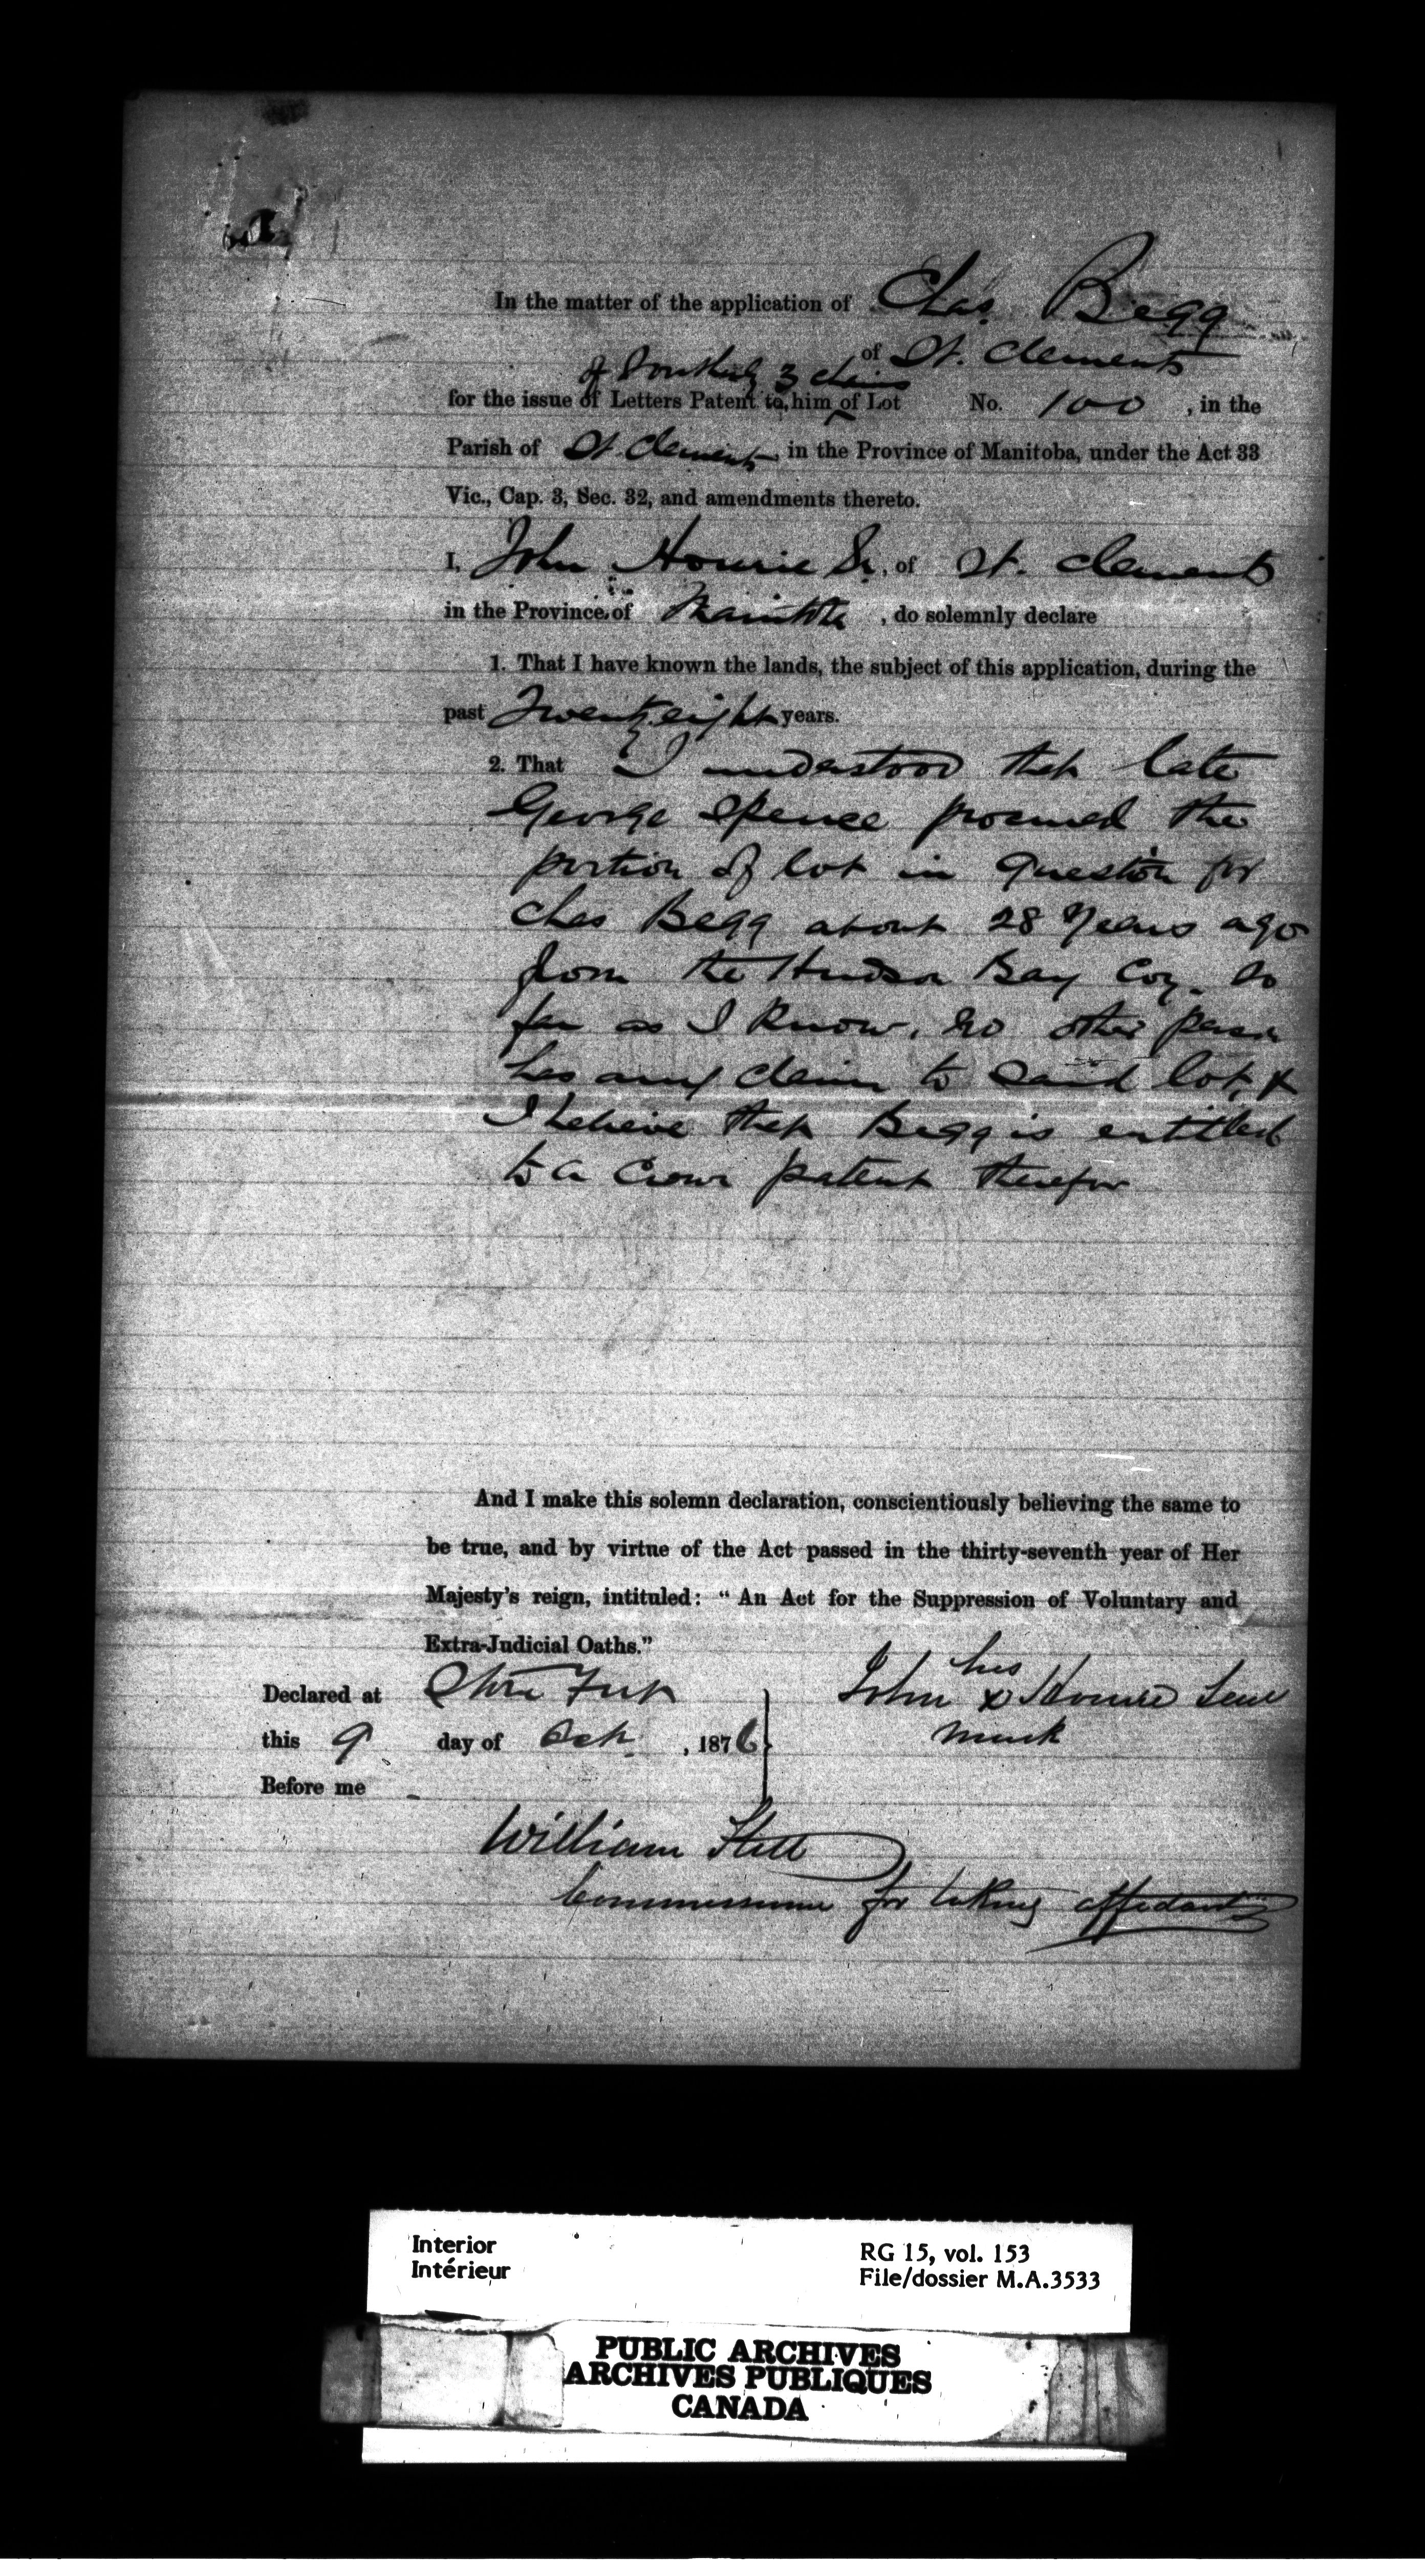 In the matter of the application of Chas. Begg
of St. Clements
of Southerly 3 chains
for the issue of Letters Patent to him of Lot No. 100, in the
Parish of St. Clements in the Province of Manitoba, under the Act 33
Vic., Cap. 3, Sec. 32, and amendments thereto.
I, John Hourie Sr, of St. Clements
in the Province of Manitoba, do solemnly declare
1. That I have known the lands, the subject of this application, during the
past Twenty eight years.
2. That I understood that late
George Spence procured the
portion of lot in question for
Chas Begg about 28 years ago
from the Hudson Bay Coy. So
far as I know, no other person
has any claim to said lot, &
I believe that Begg is entitled
to a Crown patent therefor
And I make this solemn declaration, conscientiously believing the same to
be true, and by virtue of the Act passed in the thirty-seventh year of Her
Majesty's reign, intituled: "An Act for the Suppression of Voluntary and
Extra-Judicial Oaths."
Declared at Stone Fort
this 9 day of Oct., 1876
Before me
his
John x Hourie Senr
mark
William
Commissioner for taking affidavits
Interior
Intérieur
RG 15, vol. 153
File/dossier M.A.3533
PUBLIC ARCHIVES
ARCHIVES PUBLIQUES
CANADA